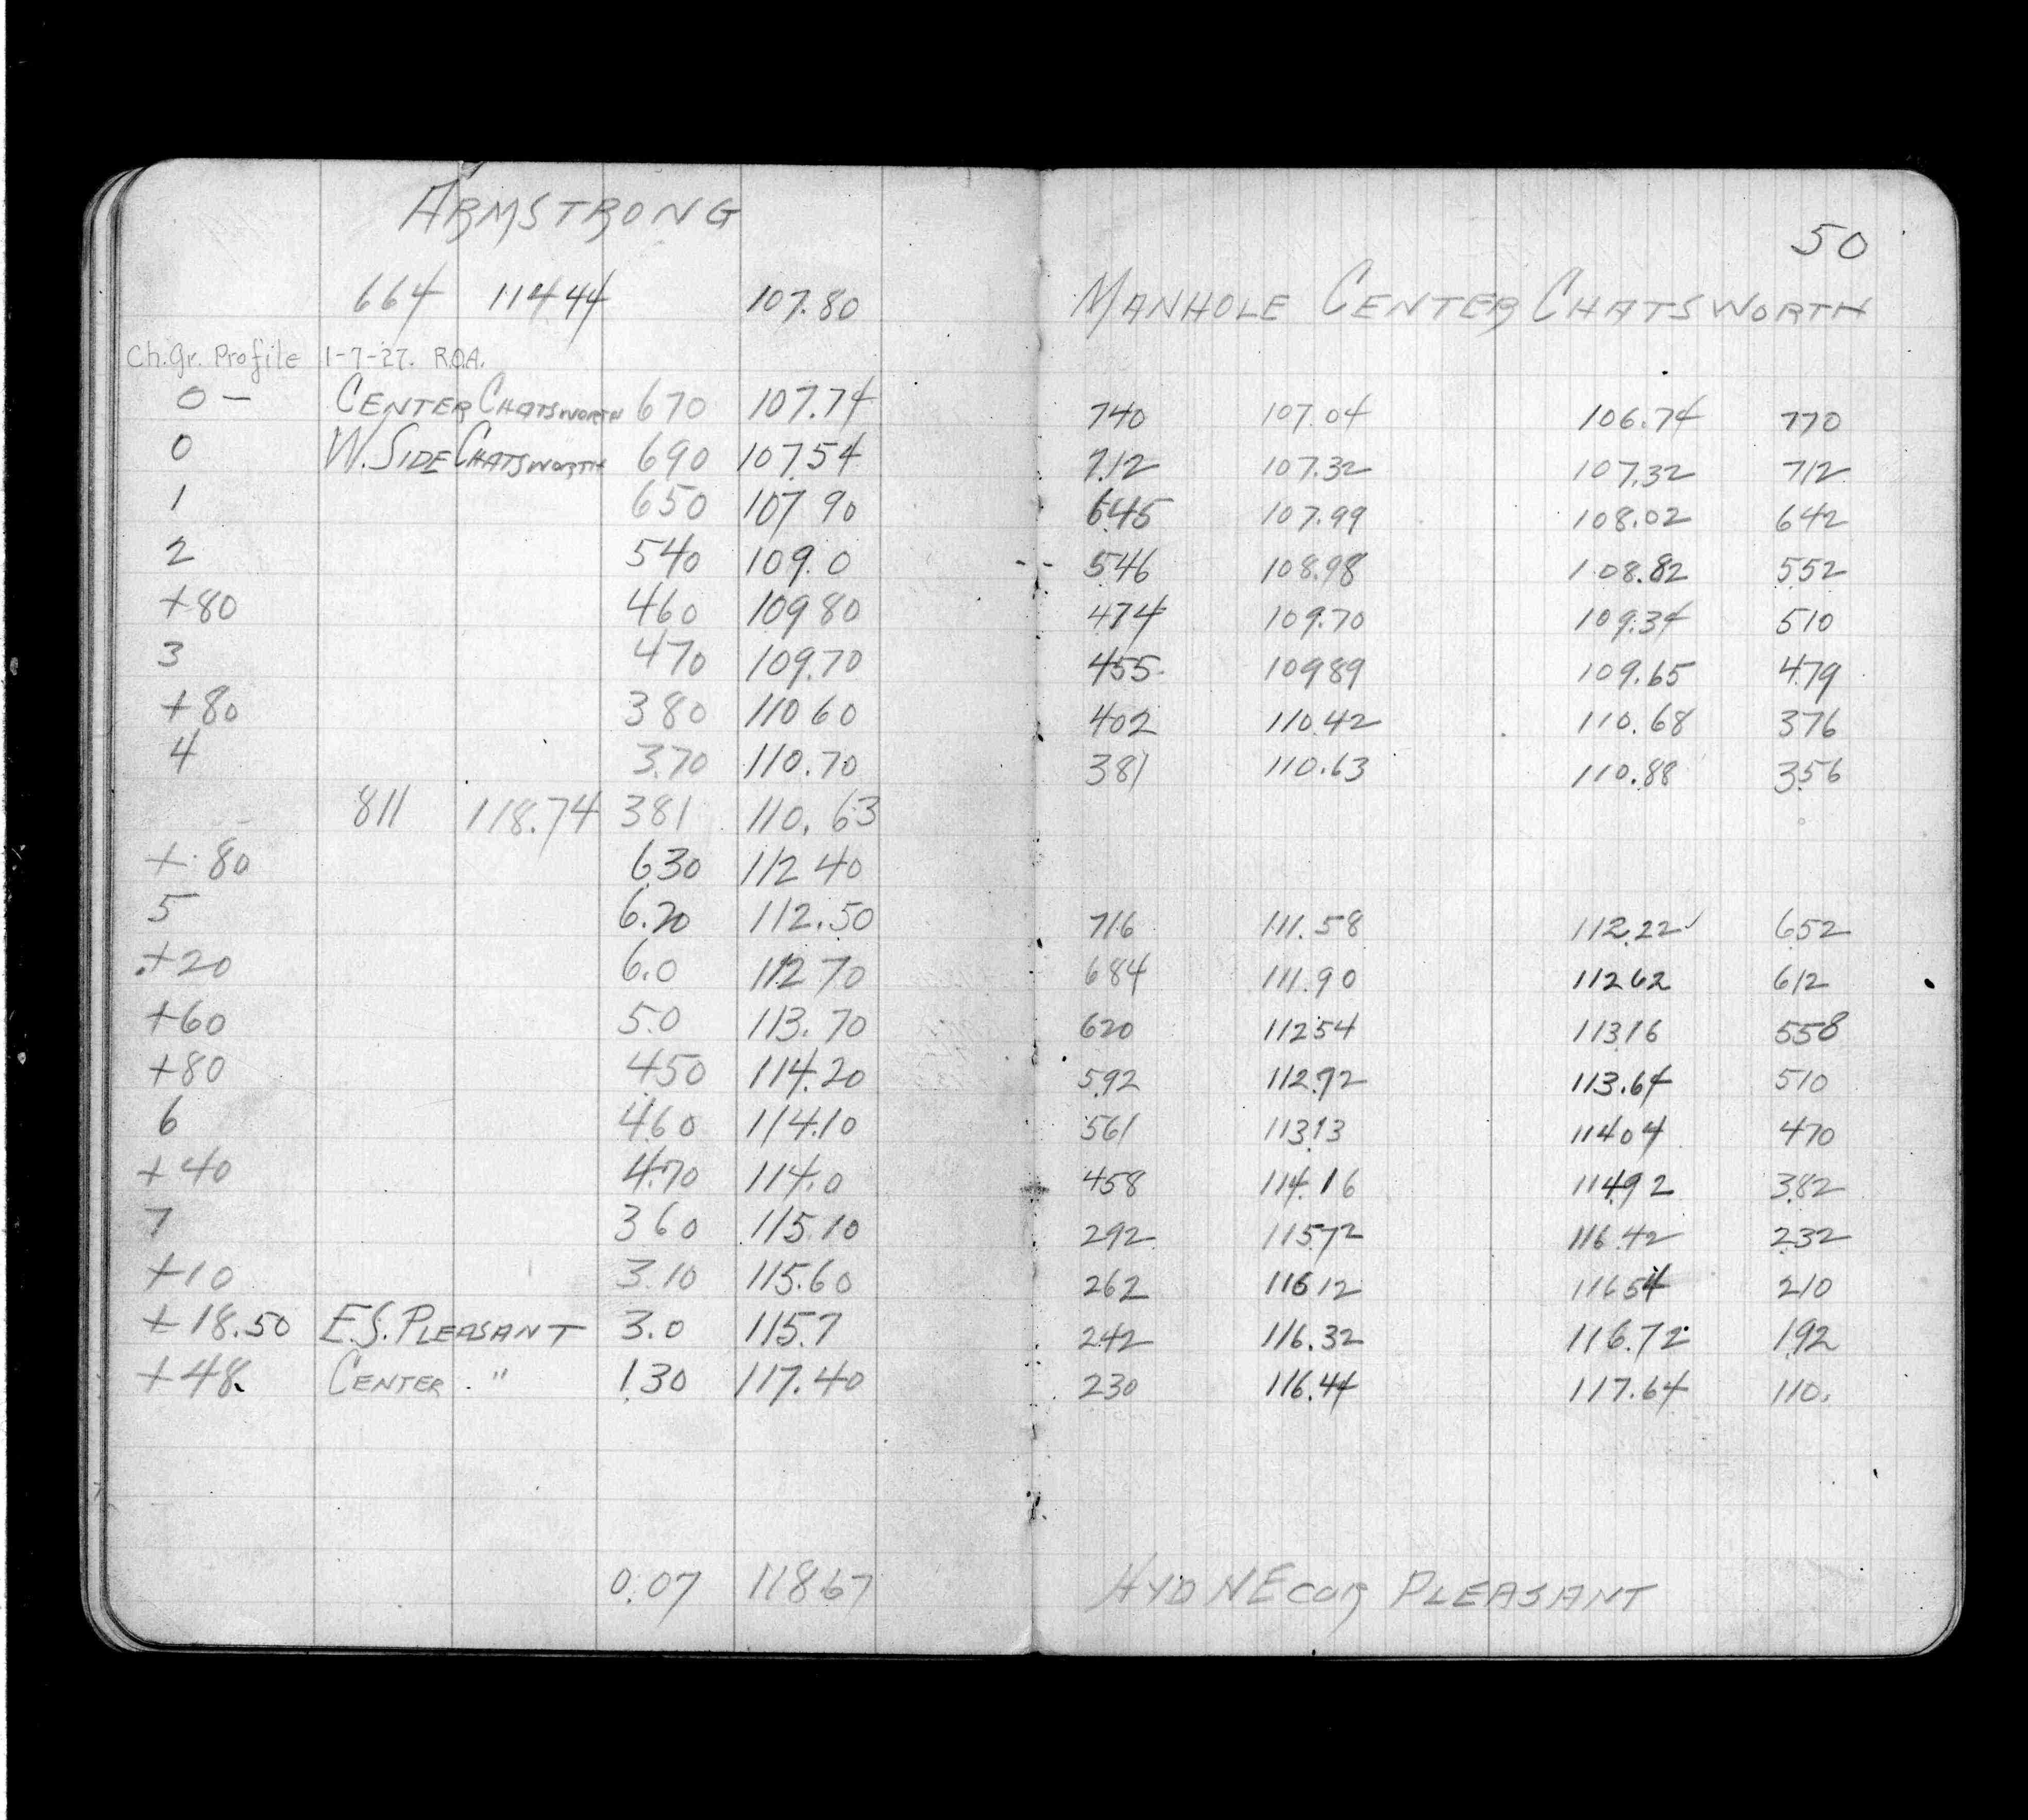 ARMSTRONG
50
664 114.44 107.80 MANHOLE CENTER CHATSWORTH
Ch. Gr. Profile 1-7-27. R.O.A.
0- CENTER CHATSWORTH 670 107.74 740 107.04 106.74 770
0 W. SIDE CHATSWORTH 690 107.54 712 107.32 107.32 712
1 650 107 90 645 107.99 108.02 642
2 540 109.0 546 108.98 108.82 552
+80 460 109 80 474 109.70 109.34 510
3 470 109.70 455 109 89 109.65 479
+80 380 110 60 402 110.42 110.68 376
4 3.70 110.70 381 110.63 110.88 356
811 118.74 381 110.63
+80 630 112 40
5 6.20 112.50 716 111.58 112.22 652
+20 6.0 112 70 684 111.90 112 62 612
+60 5.0 113.70 620 112 54 113 16 558
+80 450 114.20 592 112.92 113.64 510
6 460 114.10 561 113 13 114 04 470
+40 4.70 114.0 458 114.16 114.92 382
7 360 115.10 292 115 72 116.42 232
+10 3.10 115.60 262 116 12 116 54 210
+18.50 E.S. PLEASANT 3.0 115.7 242 116.32 116.72 192
+48. CENTER " 130 117.40 230 116.44 117.64 110.
0.07 118.67 HYD NE COR PLEASANT